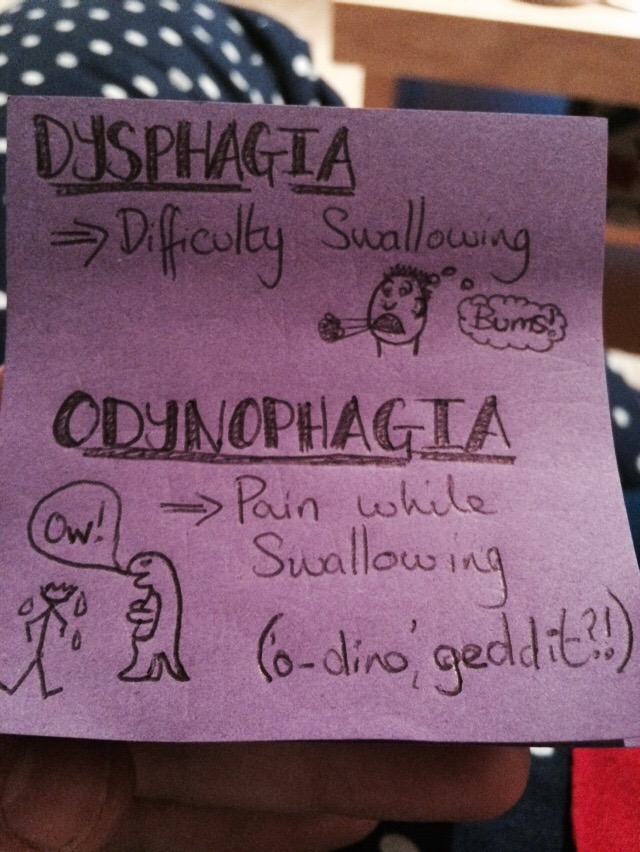 DYSPHAGIA
⇒ Difficulty Swallowing
Bums!
ODYNOPHAGIA
Ow!
⇒ Pain while
Swallowing
('o-dino,' geddit?!)